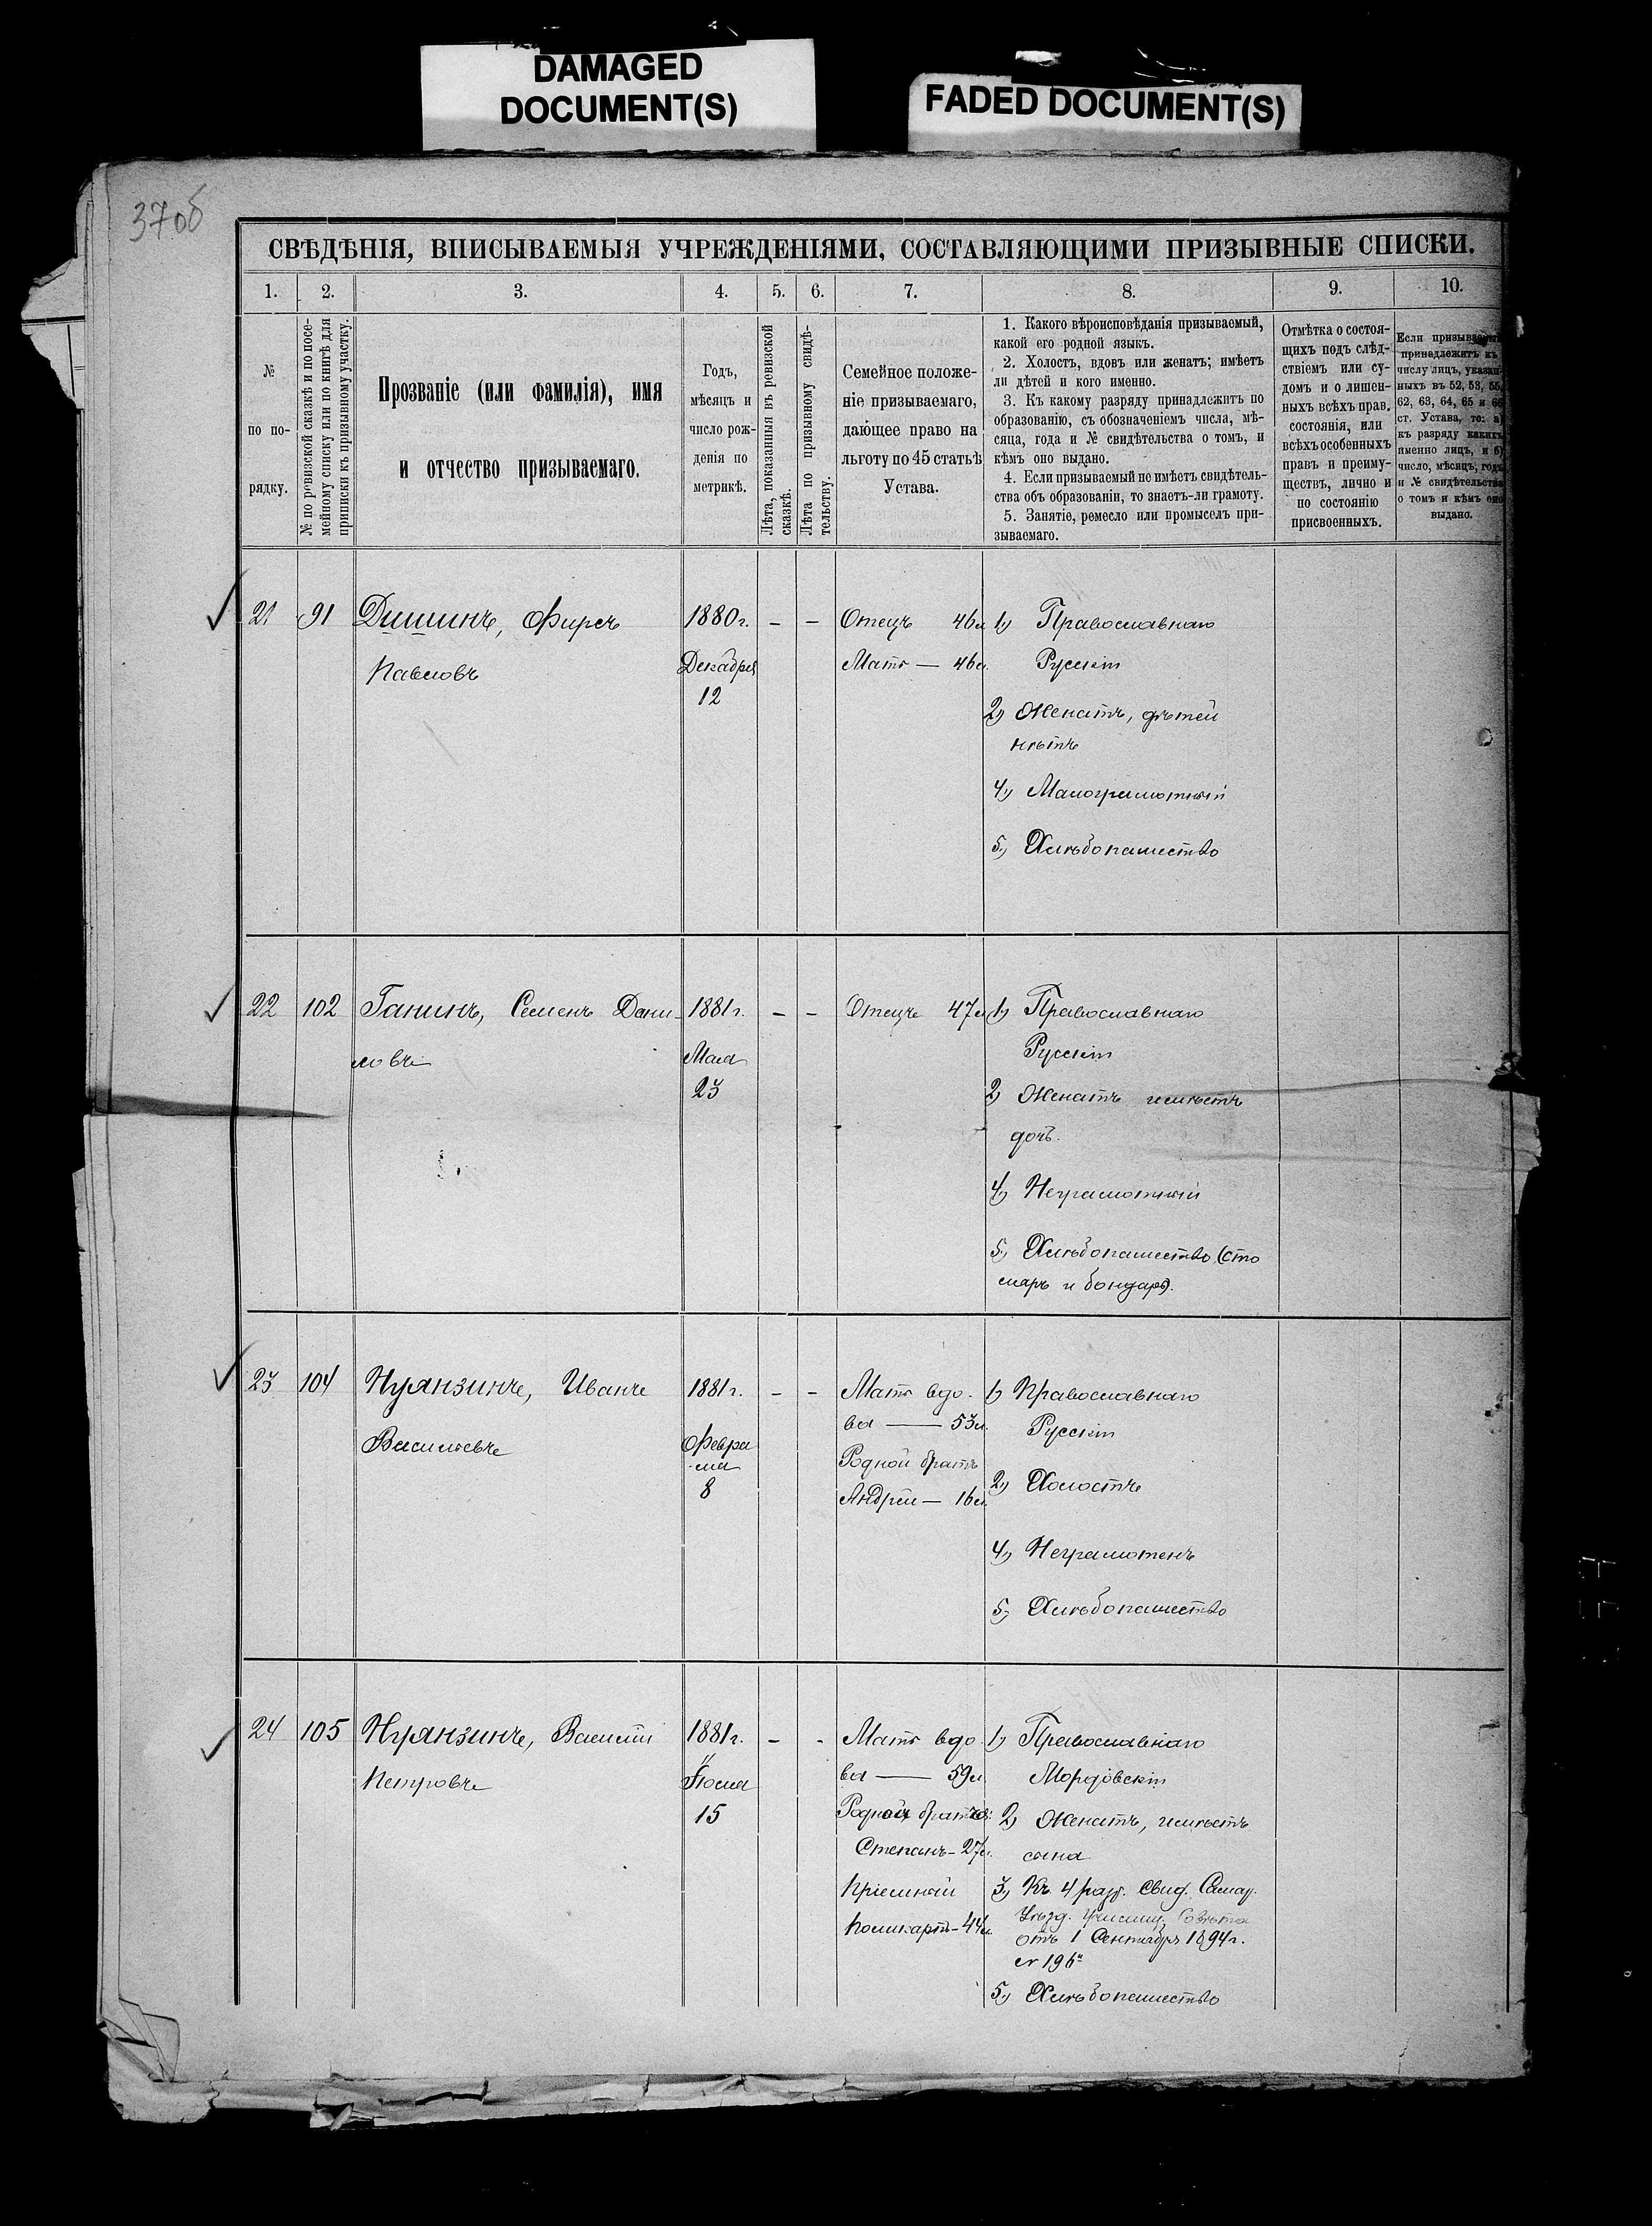 DAMAGED
DOCUMENT(S)
FADED DOCUMENT(S)
37об
СВѢДѢНІЯ, ВПИСЫВАЕМЫЯ УЧРЕЖДЕНІЯМИ, СОСТАВЛЯЮЩИМИ ПРИЗЫВНЫЕ СПИСКИ.
1. 2. 3. 4. 5. 6. 7. 8. 9. 10.
№
по по-
рядку.
№ по ревизской сказкѣ и по посе-
мейному списку или по книгѣ для
приписки къ призывному участку.
Прозваніе (или фамилія), имя
и отчество призываемаго.
Годъ,
мѣсяцъ и
число рож-
денія по
метрикѣ.
Лѣта, показанныя въ ревизской
сказкѣ.
Лѣта по призывному свидѣ-
тельству.
Семейное положе-
ніе призываемаго,
дающее право на
льготу по 45 статьѣ
Устава.
1. Какого вѣроисповѣданія призываемый,
какой его родной языкъ.
2. Холостъ, вдовъ или женатъ; имѣетъ
ли дѣтей и кого именно.
3. Къ какому разряду принадлежитъ по
образованію, съ обозначеніемъ числа, мѣ-
сяца, года и № свидѣтельства о томъ, и
кѣмъ оно выдано.
4. Если призываемый не имѣетъ свидѣтель-
ства объ образованіи, то знаетъ-ли грамоту.
5. Занятіе, ремесло или промыселъ при-
зываемаго.
Отмѣтка о состоя-
щихъ подъ слѣд-
ствіемъ или су-
домъ и о лишен-
ныхъ всѣхъ прав.
состоянія, или
всѣхъ особенныхъ
правъ и преиму-
ществъ, лично и
по состоянію
присвоенныхъ.
Если призываемый
принадлежитъ къ
числу лицъ, указан-
ныхъ въ 52, 53, 55,
62, 63, 64, 65 и 66
ст. Устава, то: а)
къ разряду какихъ
именно лицъ, и б)
число, мѣсяцъ, годъ
и № свидѣтельства
о томъ и кѣмъ оно
выдано.
21 91 Дишинъ, Фирсъ
Павловъ
1880 г.
Декабря
12
— —
Отецъ 46 л
Мать — 46 л.
1) Православнаго
Русскій
2) Женатъ, дѣтей
нѣтъ
4) Малограмотный
5) Хлѣбопашество
22 102 Ганинъ, Семенъ Дани-
ловъ
1881 г.
Мая
23
— —
Отецъ 47 л
1) Православнаго
Русскій
2) Женатъ имѣетъ
дочь.
4) Неграмотный
5) Хлѣбопашество (сто
ляръ и бондарь).
23 104 Нуянзинъ, Иванъ
Васильевъ
1881 г.
Февра
ля
8
— —
Мать вдо-
ва — 53 л.
Родной братъ
Андрей — 16 л.
1) Православнаго
Русскій
2) Холостъ
4) Неграмотенъ
5) Хлѣбопашество
24 105 Нуянзинъ, Василій
Петровъ
1881 г.
Іюля
15
— -
Мать вдо-
ва — 59 л
Степанъ - 27 л.
Пріемный
1) Православнаго
Мордовскій
2) Женатъ, имѣетъ
сына
3) Къ 4 разр. Свид. Самар.
Уѣзд. Училищ. Совѣта
отъ 1 Сентября 1894 г.
№ 196
5) Хлѣбопашество